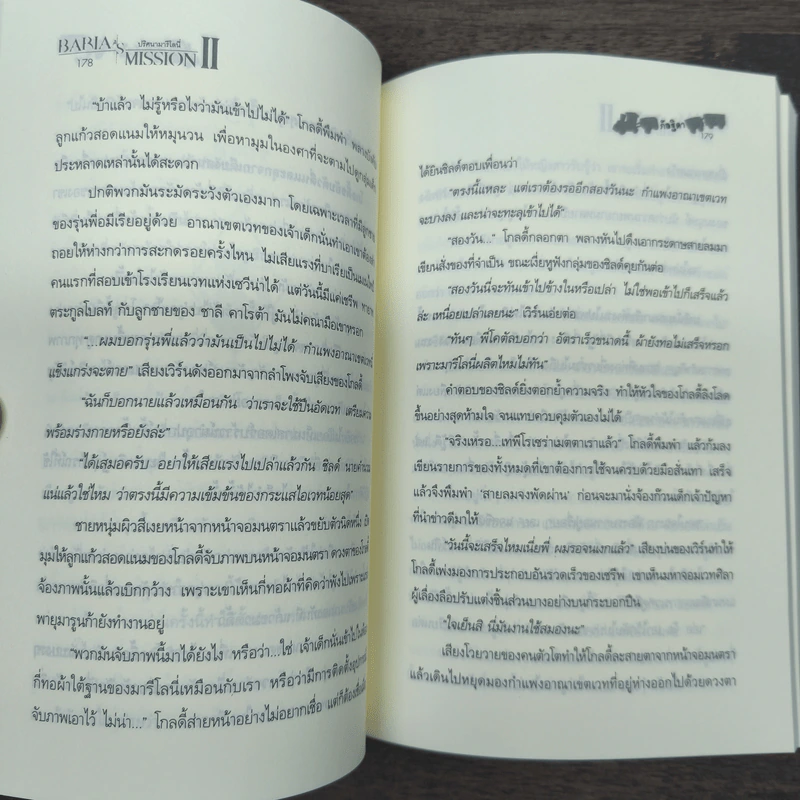 BARIA'S MISSION II
ปริศนามารีโลนี่
178
"บ้าแล้ว ไม่รู้หรือไงว่ามันเข้าไปไม่ได้" โกลดี้พึมพำ พลาง
ลูกแก้วสอดแนมให้หมุนวน เพื่อหามุมในองศาที่จะตามไป
ประหลาดเหล่านั้นได้สะดวก
ปกติพวกมันระมัดระวังตัวเองมาก โดยเฉพาะเวลาที่มี
ของรุ่นพี่อมีเรียอยู่ด้วย อาณาเขตเวทของเจ้าเด็กนั่นทำเอาเขา
ถอยให้ห่างกว่าการสะกดรอยครั้งไหน ไม่เสียแรงที่บาเรียเป็น
คนแรกที่สอบเข้าโรงเรียนเวทแห่งเซวีน่าได้ แต่วันนี้มีแค่เซรีฟ
ตระกูลโบลท์ กับลูกชายของ ซาลี คาโรต้า มันไม่คณามือเขาหรอก
"...ผมบอกรุ่นพี่แล้วว่ามันเป็นไปไม่ได้ กำแพงอาณาเขต
แข็งแกร่งจะตาย" เสียงเวิร์นดังออกมาจากลำโพงจับเสียงของโกลดี้
"ฉันก็บอกนายแล้วเหมือนกัน ว่าเราจะใช้ปืนอัดเวท เตรียม
พร้อมร่างกายหรือยังล่ะ"
"ได้เสมอครับ อย่าให้เสียแรงไปเปล่าแล้วกัน ชิลด์ นาย
แน่แล้วใช่ไหม ว่าตรงนี้มีความเข้มข้นของกระแสไอเวทน้อยสุด"
ชายหนุ่มผิวสีเงยหน้าจากหน้าจอมนตราแล้วขยับตัวนิดหนึ่ง
มุมให้ลูกแก้วสอดแนมของโกลดี้จับภาพบนหน้าจอมนตรา ดวงตาของ
จ้องภาพนั้นแล้วเบิกกว้าง เพราะเขาเห็นกี่ทอผ้าที่คิดว่าพังไปเพราะ
พายุมารูนก้ายังทำงานอยู่
"พวกมันจับภาพนี้มาได้ยังไง หรือว่า...ใช่ เจ้าเด็กนั่นเข้าไปใน
กี่ทอผ้าใต้ฐานของมารีโลนี่เหมือนกับเรา หรือว่ามีการติดตั้ง
จับภาพเอาไว้ ไม่น่า..." โกลดี้ส่ายหน้าอย่างไม่อยากเชื่อ แต่ก็ต้อง
กัลฐิดา
179
ได้ยินชิลด์ตอบเพื่อนว่า
"ตรงนี้แหละ แต่เราต้องรออีกสองวันนะ กำแพงอาณาเขตเวท
จะบางลง และน่าจะทะลุเข้าไปได้"
"สองวัน..." โกลดี้กลอกตา พลางหันไปดึงเอากระดาษสายลมมา
เขียนสั่งของที่จำเป็น ขณะเงี่ยหูฟังกลุ่มของชิลด์คุยกันต่อ
"สองวันนี่จะทันเข้าไปข้างในหรือเปล่า ไม่ใช่พอเข้าไปก็เสร็จแล้ว
ล่ะ เหนื่อยเปล่าเลยนะ" เวิร์นเอ่ยต่อ
"ทันๆ พี่โคตัลบอกว่า อัตราเร็วขนาดนี้ ผ้ายังทอไม่เสร็จหรอก
เพราะมารีโลนี่ผลิตไหมไม่ทัน"
คำตอบของชิลด์ยิ่งตอกย้ำความจริง ทำให้หัวใจของโกลดี้ลิงโลด
ขึ้นอย่างสุดห้ามใจ จนแทบควบคุมตัวเองไม่ได้
"จริงเหรอ...เทพีโรเซว่าเมตตาเราแล้ว" โกลดี้พึมพำ แล้วก้มลง
เขียนรายการของทั้งหมดที่เขาต้องการใช้จนครบด้วยมือสั่นเทา เสร็จ
แล้วจึงพึมพำ 'สายลมจงพัดผ่าน' ก่อนจะมานั่งจ้องก๊วนเด็กเจ้าปัญหา
ที่นำข่าวดีมาให้
"วันนี้จะเสร็จไหมเนี่ยพี่ ผมรอจนงกแล้ว" เสียงบ่นของเวิร์นทำให้
โกลดี้เพ่งมองการประกอบอันรวดเร็วของเซรีฟ เขาเห็นมหาจอมเวทศิลา
ผู้เลื่องลือปรับแต่งชิ้นส่วนบางอย่างบนกระบอกปืน
"ใจเย็นสิ นี่มันงานใช้สมองนะ"
เสียงโวยวายของคนตัวโตทำให้โกลดี้ละสายตาจากหน้าจอมนตรา
แล้วเดินไปหยุดมองกำแพงอาณาเขตเวทที่อยู่ห่างออกไปด้วยดวงตา